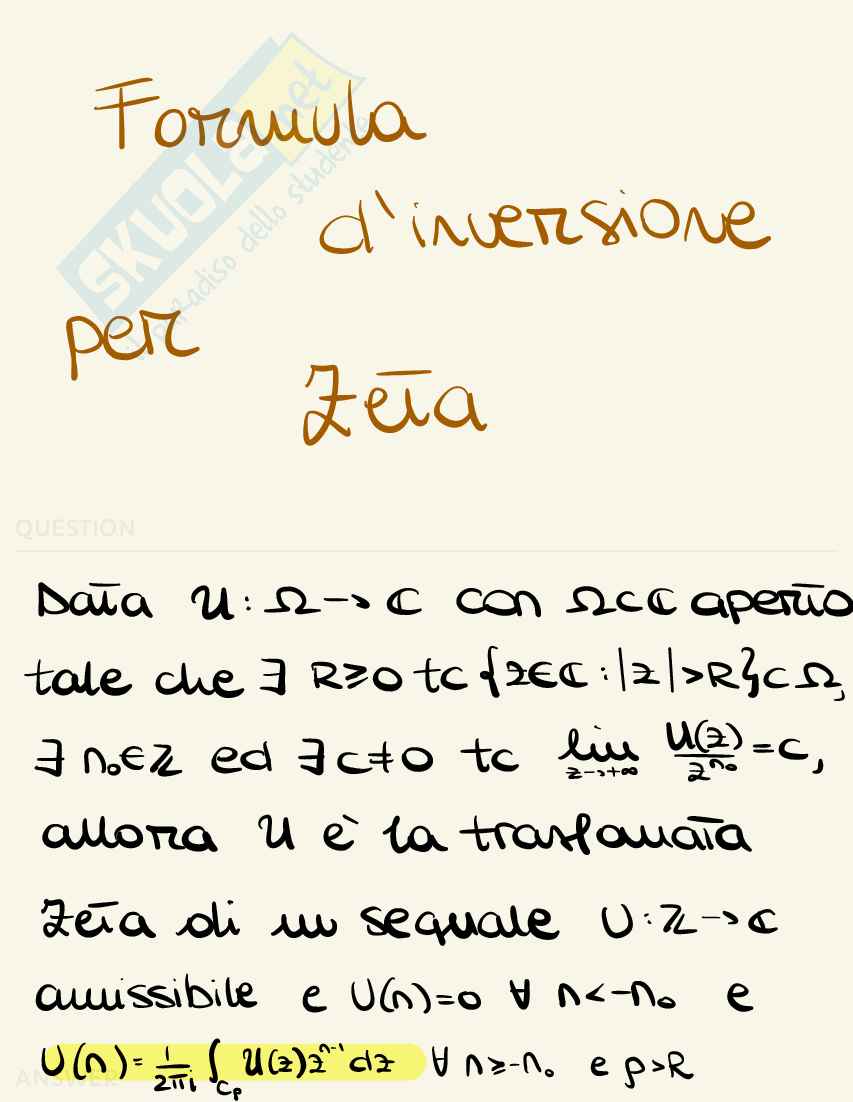 Formula
d'inversione
per
Zeta
SKUOLA.net
il paradiso dello studente
QUESTION
Data U: Ω → ℂ con Ω⊂ℂ aperto
tale che ∃ R≥0 tc {z∈ℂ : |z|>R}⊂Ω,
∃ n₀∈ℤ ed ∃ c≠0 tc lim_{z→+∞} U(z)/z^{n₀} = c,
allora U è la trasformata
Zeta di un segnale U: ℤ → ℂ
ammissibile e U(n)=0 ∀ n<-n₀ e
U(n)= 1/2πi ∫_{Cρ} U(z)z^{n-1} dz ∀ n≥-n₀ e ρ>R
ANSWER